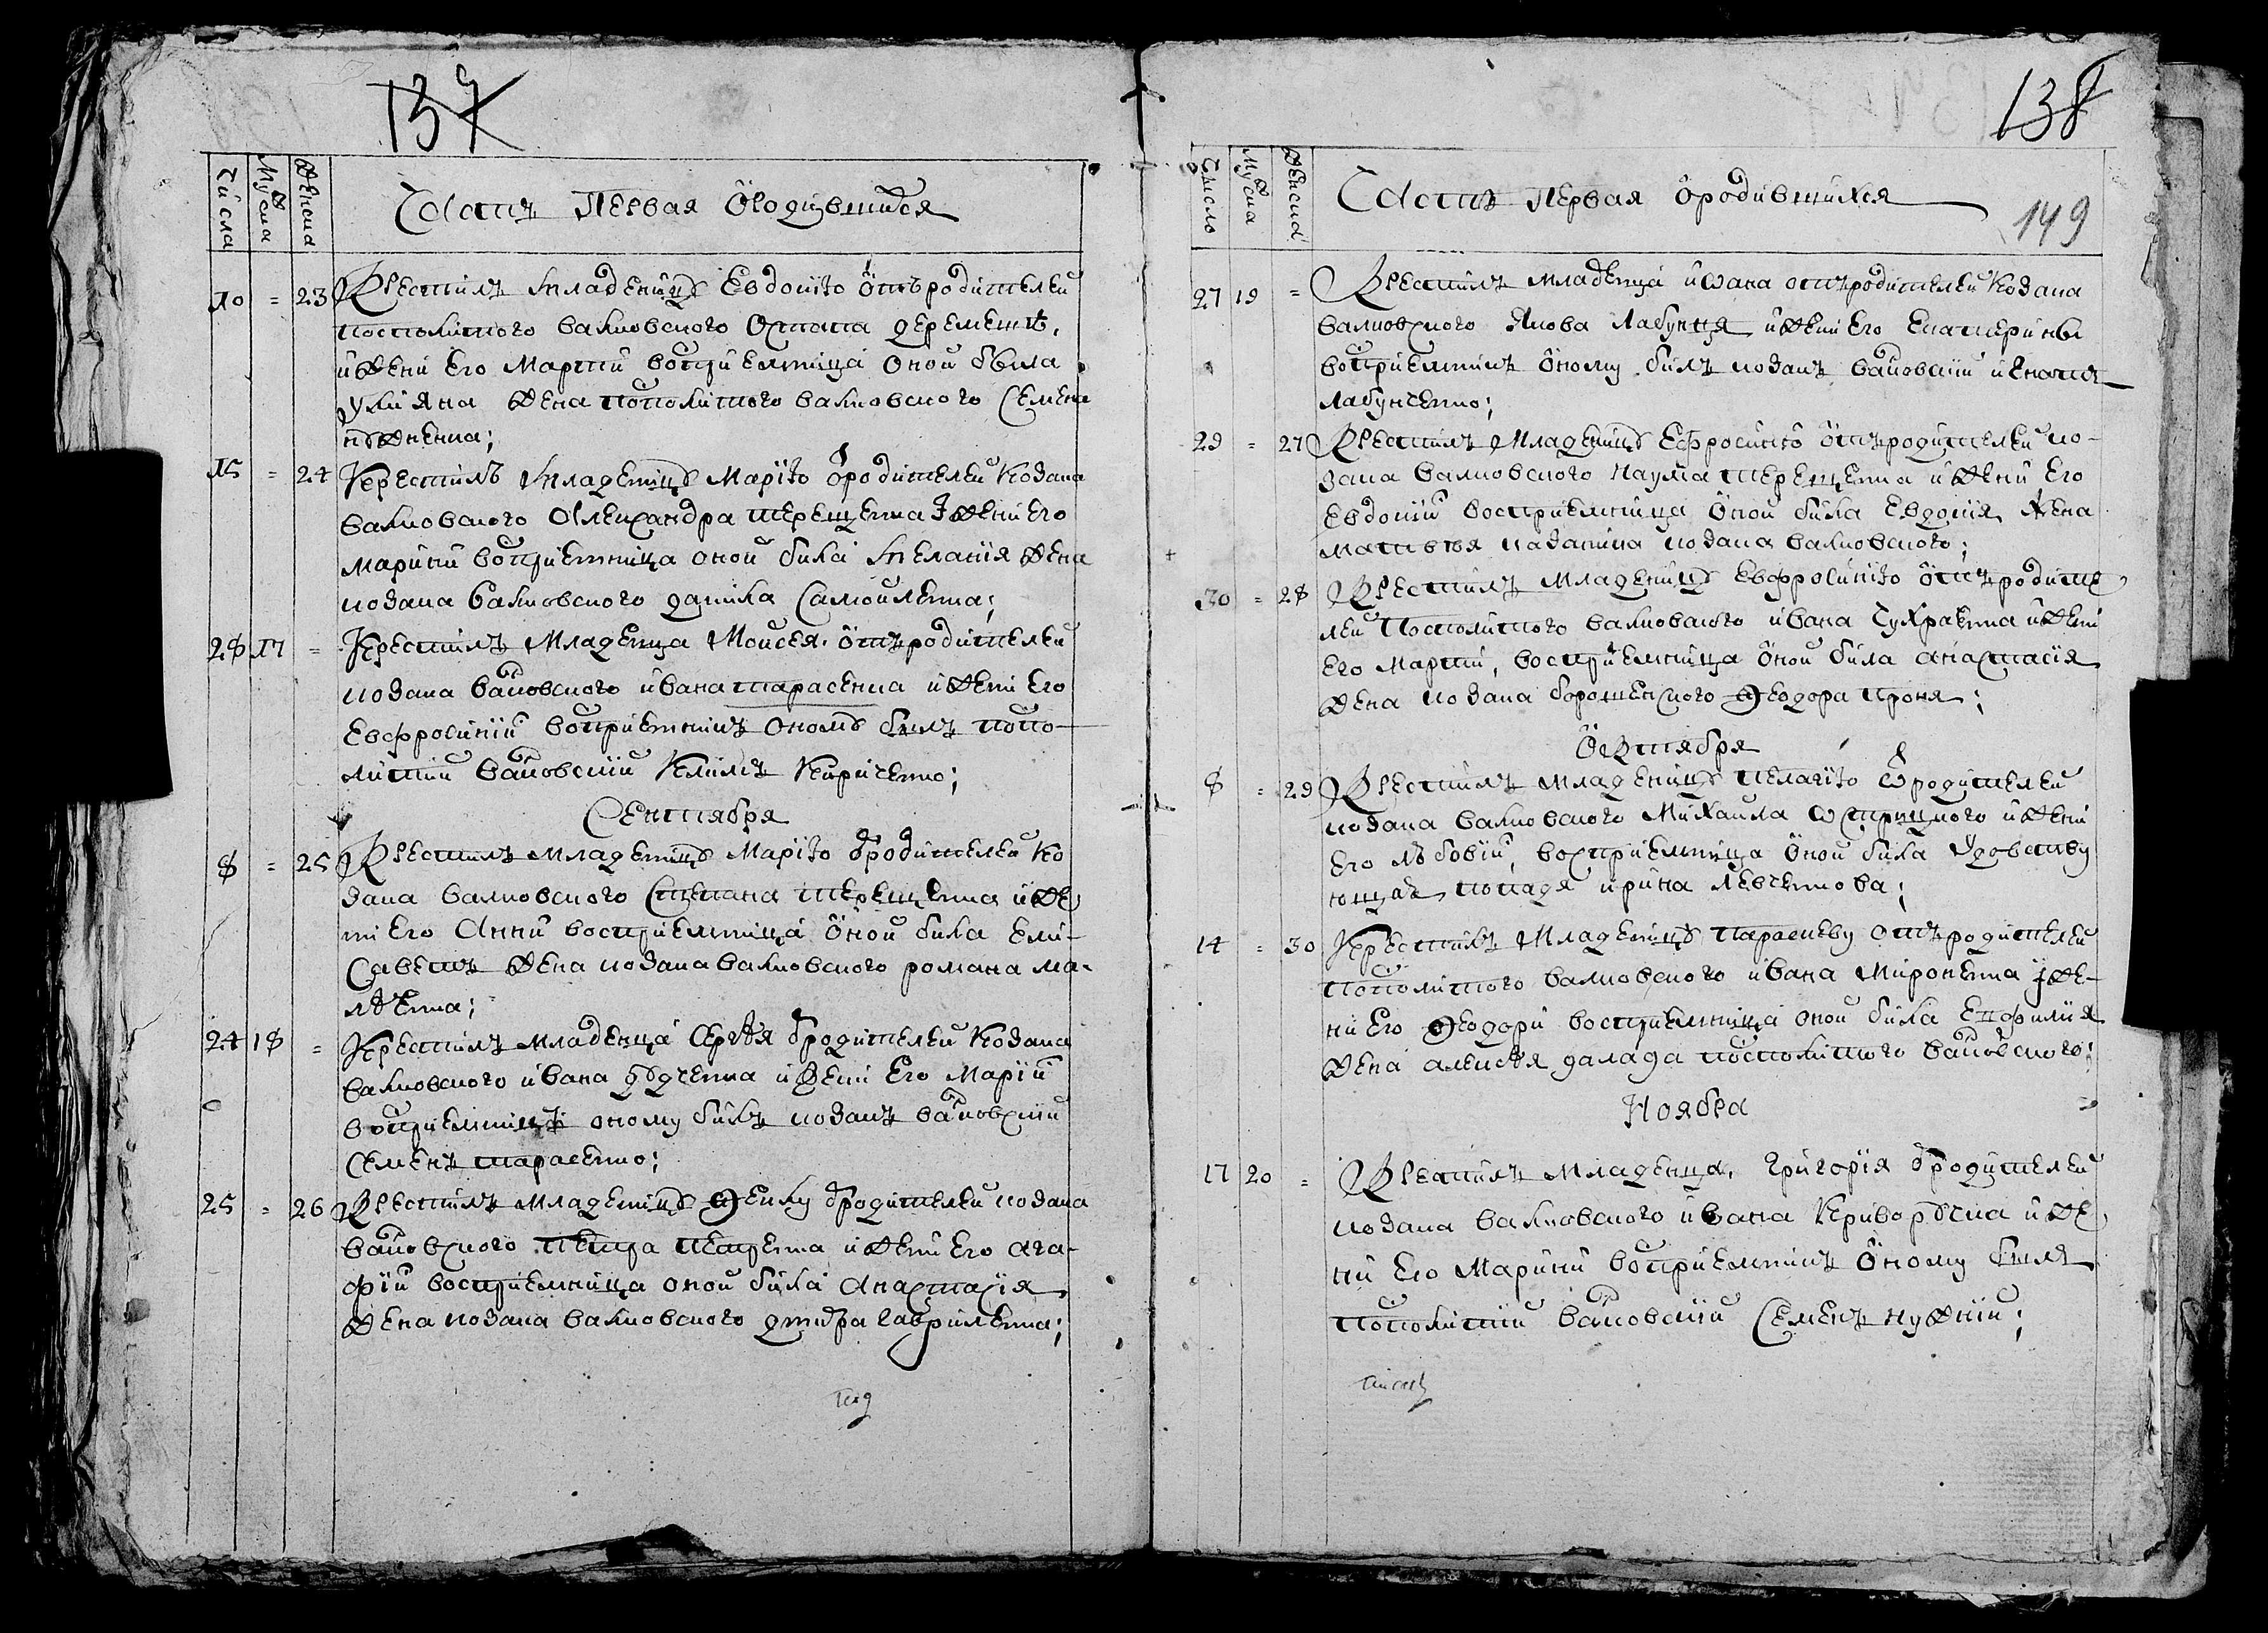 137
Числа
Мужска
Женска
Часть Первая Ородившихся
10 = 23 Крестилъ младеницу Евдокію ѿтъ родителей
посполитого валковского Остапа деременка,
и жени его Марти воспріемница оной была
Улияна жена посполитого валковского Семена
нуженка;
15 = 24 Крестилъ младеницу Марію ѿ родителей Козака
валковского Олександра терещенка и жени его
марини воспріемница оной била мелания жена
козака валковского данила Самойленка;
28 17 = Крестилъ Младенца Моисея ѿтъ родителей
козака валковского ивана тарасенка и жени его
Евфросиніи воспріемникъ оному билъ поспо-
литий валковскій Климъ Кириченко;
Сентября
8 = 25 Крестилъ младеницу Марію ѿ родителей Ко
зака валковского Степана терещенка и же
ни его Анни воспріемница оной била Ели-
Савета жена козака валковского романа ма-
лѣенка;
24 18 = Крестилъ младенца Сергѣя ѿ родителей Козака
валковского ивана дудченка и жени его Маріи
воспріемникъ оному билъ козакъ валковскій
Семенъ тарасенко;
25 = 26 Крестилъ младеницу Ѳеклу ѿ родителей козака
валковского петра петренка и жени его ага-
фіи воспріемница оной била Анастасія
жена козака валковского дмитра гавриленка;
138
149
Число
Мужска
Женска
Часть первая ородившихся
27 19 = Крестилъ младенца иѡана отъ родителей Козака
валковского Якова Лабунця и жени Его Екатерини
воспріемникъ оному билъ козакъ валковскій игнатъ
лабунченко;
29 = 27 Крестилъ Младеницу Ефросинію ѿтъ родителей ко-
зака валковского Наума терещенка и жени его
Евдокіи воспріемница оной била Евдокія жена
матвѣя козака валковского;
30 = 28 Крестилъ Младеницу Евфросинію ѿтъ родите
лей Посполитого валковского ивана Чухраенка и жени
его Марти, воспріемница оной била анастасія
жена козака Ѳеодора проня;
Октября
8 = 29 Крестилъ младеницу пелагію ѿ родителей
козака валковского Михаила ѡстрицкого и жени
его любовіи, воспріемница оной била удовству
ющая попадя ирина левченкова;
14 = 30 Крестилъ Младеницу параскеву отъ родителей
посполитого валковского ивана Мироненка и же-
ни его Ѳеодори воспріемница оной била Евфимія
жена алексѣя далада посполитого валковского;
Ноября
17 20 = Крестилъ младенца Григорія ѿ родителей
козака валковского ивана Криворучка и же
ни его Марини воспріемникъ оному билъ
посполитий валковскій Семенъ нужній;